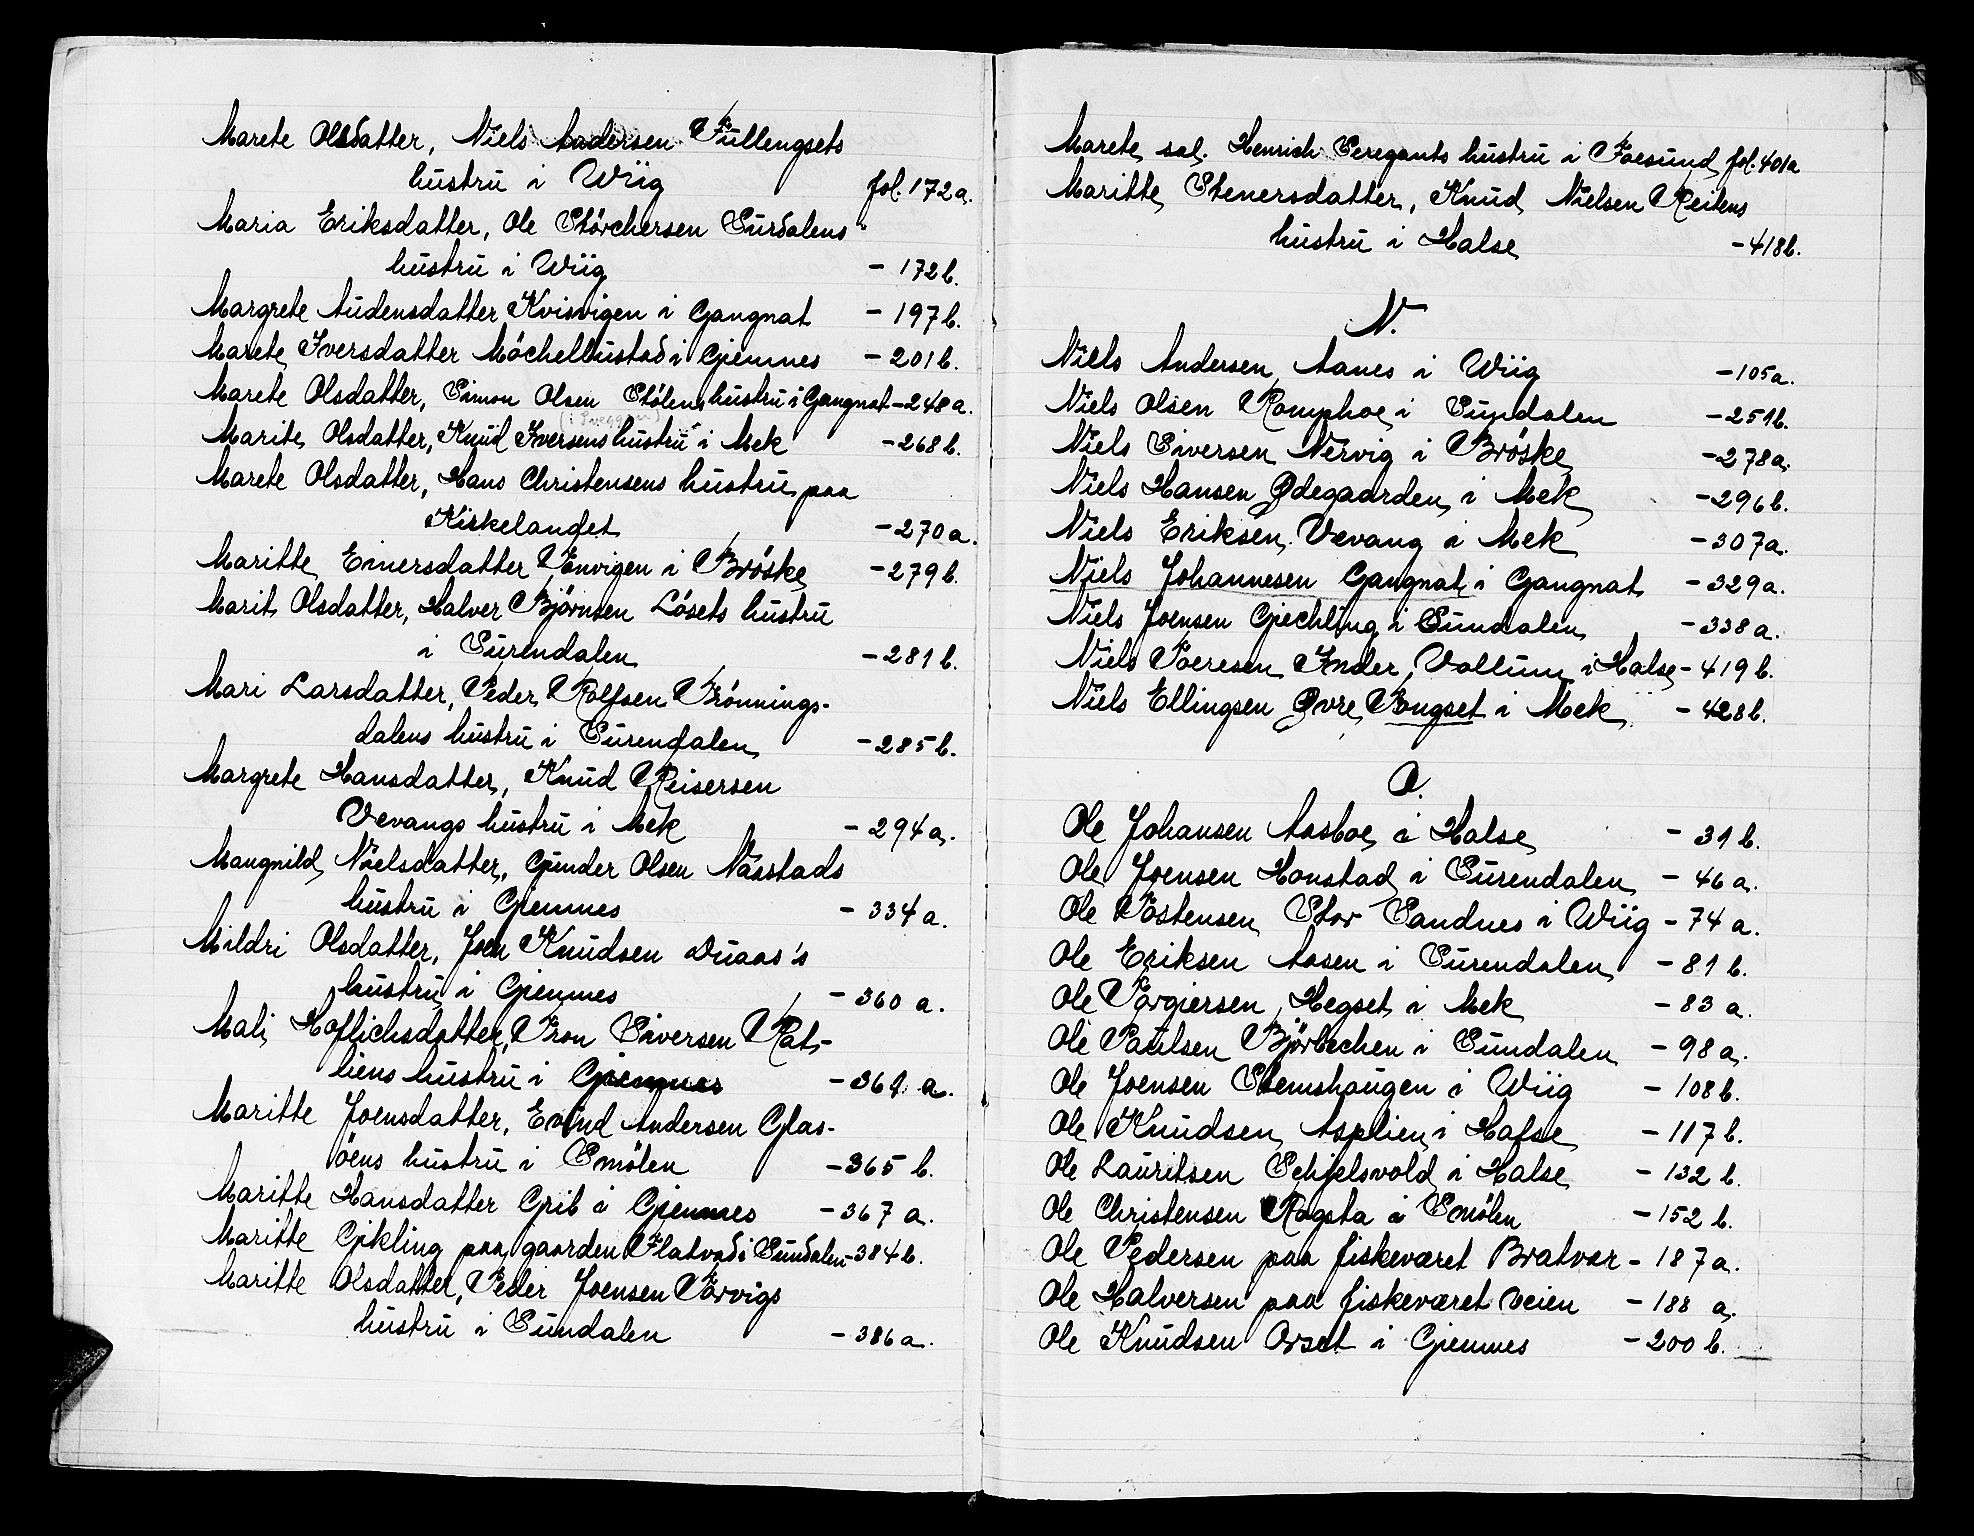 Marete Olsdatter, Niels Andersen Füllengsets
hustru i Wiig fol. 172 a.
Maria Eriksdatter, Ole Störchersen Surdalens
hustru i Wiig - 172 b.
Margrete Audensdatter Kvisvigen i Gangnat - 197 b.
Marete Iversdatter Möchelbustad i Gjemnes - 201 b.
Marete Olsdatter, Simon Olsen Stölens hustru i Gangnat - 248 a.
Marite Olsdatter, Knud Iversens hustru i Mek - 268 b.
Marete Olsdatter, Hans Christensens hustru paa
Kirkelandet - 270 a.
Maritte Einersdatter Venvigen i Bröske - 279 b.
Marit Olsdatter, Halver Björnsen Lösets hustru
i Surendalen - 281 b.
Mari Larsdatter, Peder Rolfsen Brönnings-
dalens hustru i Surendalen - 285 b.
Margrete Hansdatter, Knud Reisersen
Vevangs hustru i Mek - 294 a.
Mangnild Nielsdatter, Gunder Olsen Nàstads
hustru i Gjemnes - 334 a.
Mildri Olsdatter, Joen Knudsen Duaas's
hustru i Gjemnes - 360 a.
Mali Hoflichsdatter, Tron Siversen Rat-
liens hustru i Gjemnes - 361 a.
Maritte Joensdatter, Evind Andersen Glas-
öens hustru i Smölen - 365 b.
Maritte Hansdatter Grib i Gjemnes - 367 a.
Maritte Gikling paa gaarden Flatvad i Sundalen - 384 b.
Maritte Olsdatter, Peder Joensen Torvigs
hustru i Sundalen - 386 a.
Marete, sal. Henrich Seregants hustru i Foesund, fol. 401 a
Maritte Stenersdatter, Knud Nielsen Reitens
hustru i Halse - 418 b.
N.
Niels Andersen Aanes i Wiig - 105 a.
Niels Olsen Romphoe i Sundalen - 251 b.
Niels Siversen Nervig i Bröske - 278 a.
Niels Hansen Ødegaarden i Mek - 296 b.
Niels Eriksen Vevang i Mek - 307 a.
Niels Johannesen Gangnat i Gangnat - 329 a.
Niels Joensen Gjechling i Sundalen - 338 a.
Niels Poeresen Inder Vollum i Halse - 419 b.
Niels Ellingsen Øvre Tongset i Mek - 428 b.
O.
Ole Johansen Aasboe i Halse - 31 b.
Ole Joensen Honstad i Surendalen - 46 a.
Ole Tostensen Stor Sandnes i Wiig - 74 a.
Ole Eriksen Aasen i Surendalen - 81 b.
Ole Torgiersen Hegset i Mek - 83 a.
Ole Paulsen Björbechen i Sundalen - 98 a.
Ole Joensen Stemshaugen i Wiig - 108 b.
Ole Knudsen Asplien i Halse - 117 b.
Ole Lauritsen Schjelsvold i Halse - 132 b.
Ole Christensen Rogsta i Smölen - 152 b.
Ole Pedersen paa fiskeværet Bratvær - 187 a.
Ole Halversen paa fiskeværet Veien - 188 a.
Ole Knudsen Orset i Gjemnes - 200 b.